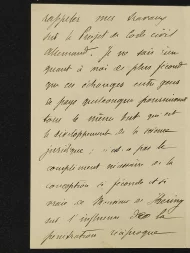 rappeler mes travaux
sur le Projet de Code civil
allemand. Je ne sais rien
quant à moi de plus fécond
que ces échanges entre gens
de pays quelconque poursuivant
tous le même but qui est
le développement de la science
juridique; n'est-ce pas le
complément nécessaire de la
conception si féconde et si
vraie de
sur l'influence de la
pénétration réciproque